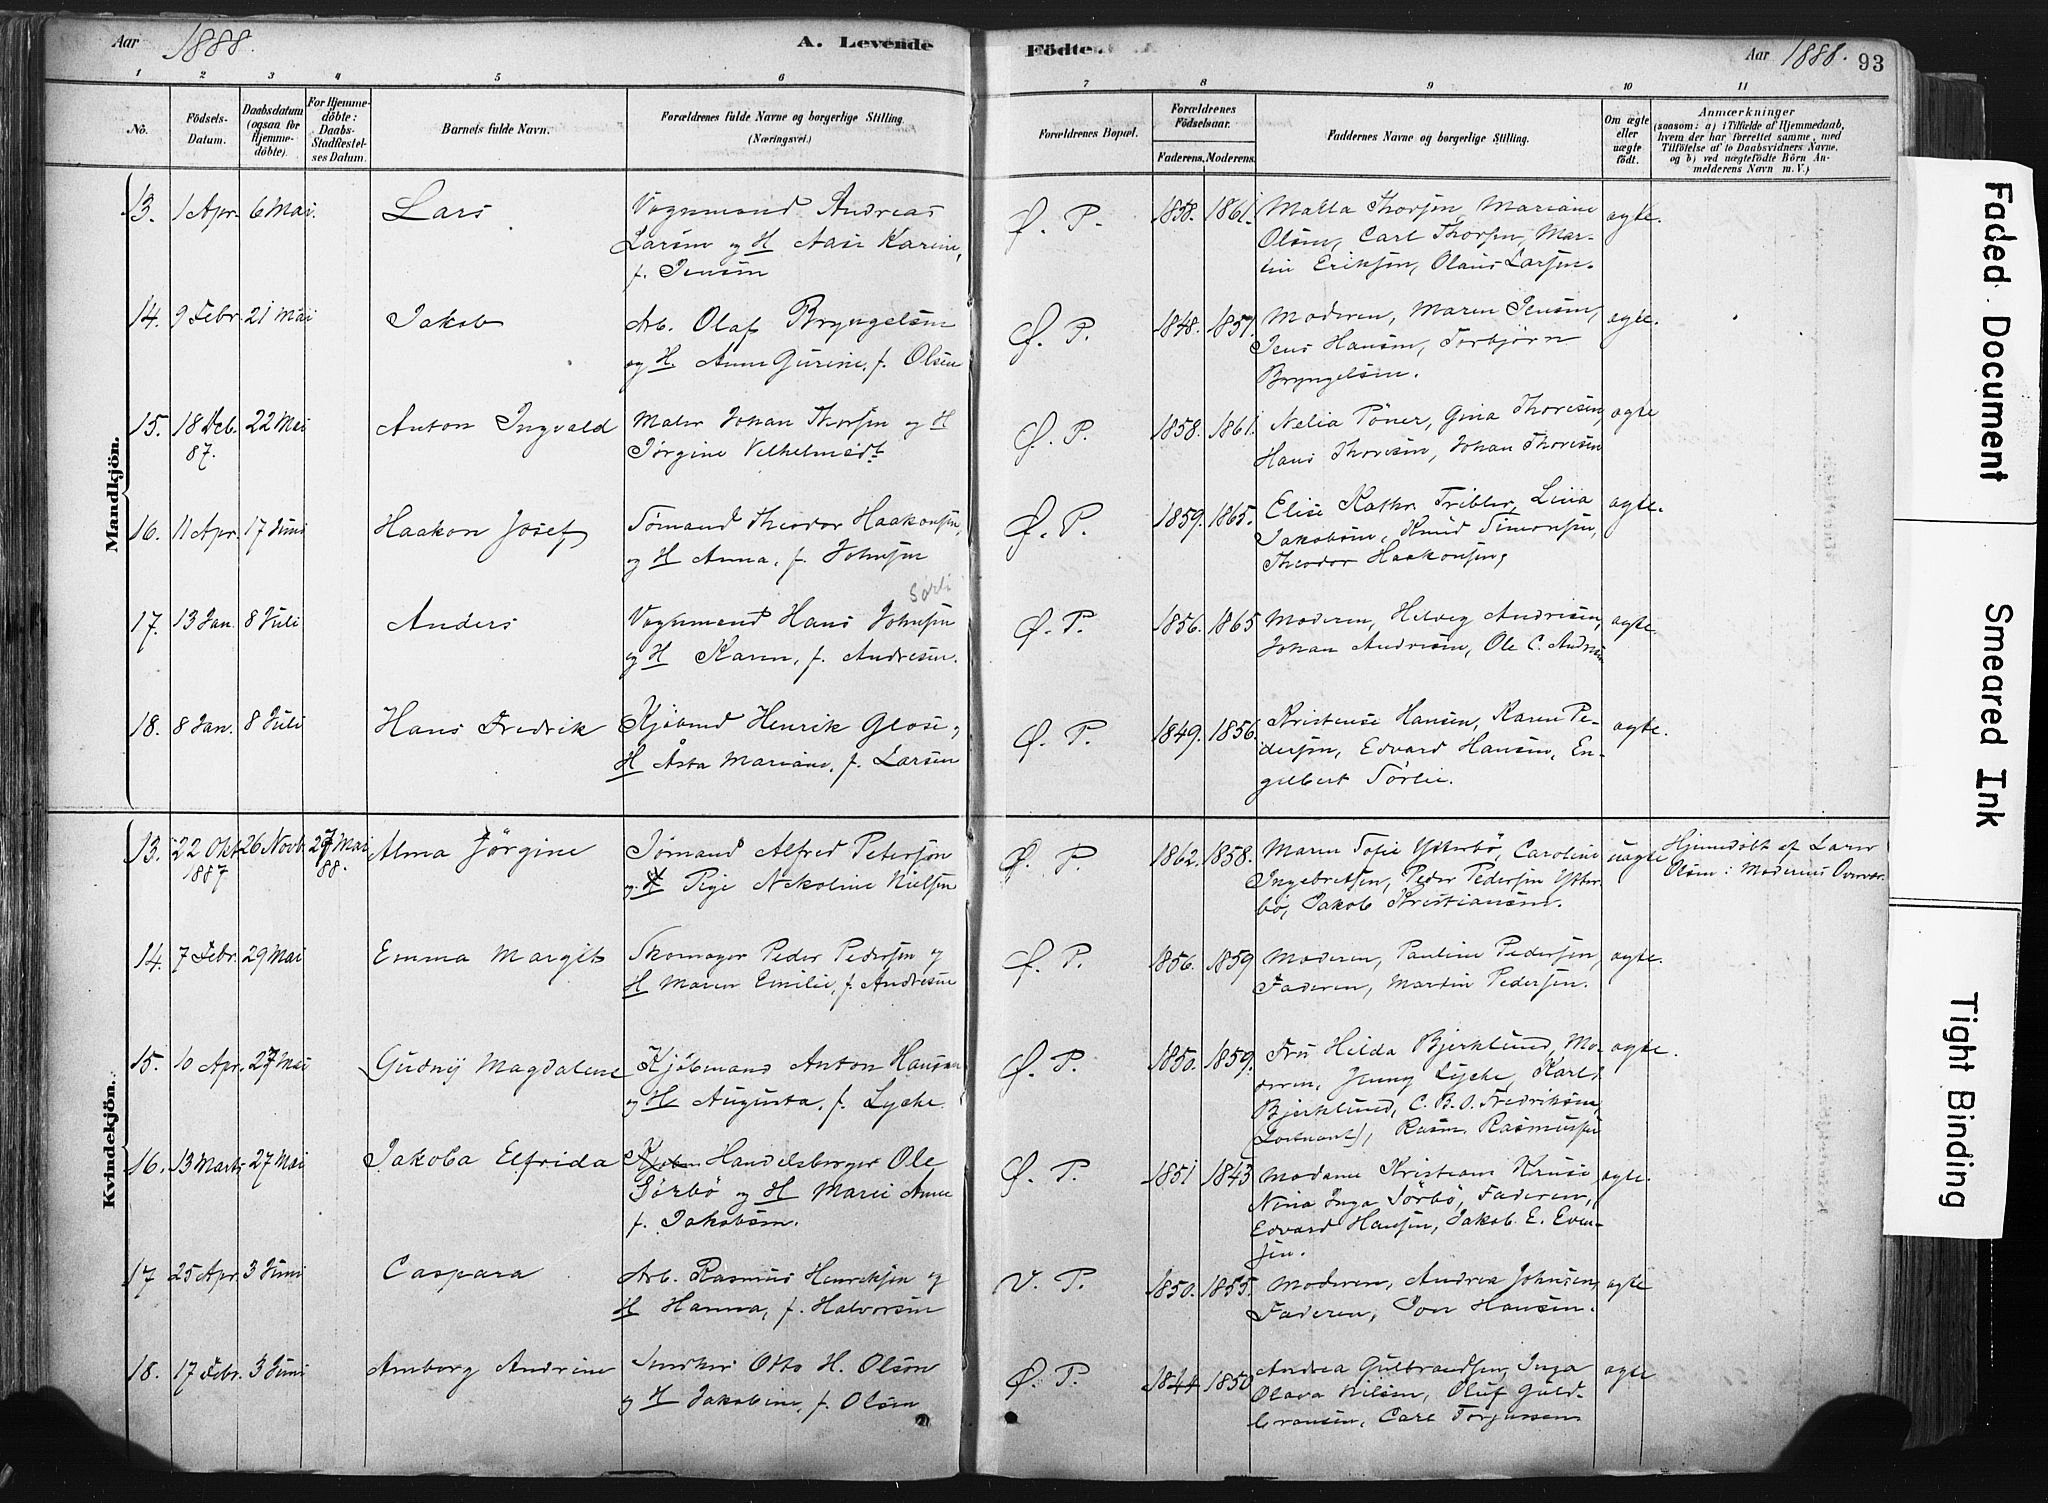 Aar 1888.
A. Levende
Födte.
Aar 1888.
93
1 2 3 4 5 6 7 8 9 10 11
No.
Födsels-
Datum.
Daabsdatum
(ogsaa for
Hjemme-
döbte).
For Hjemme-
döbte:
Daabs-
Stadfæstel-
ses Datum.
Barnets fulde Navn.
Forældrenes fulde Navne og borgerlige Stilling.
(Næringsvei.)
Forældrenes Bopæl.
Forældrenes
Födselsaar.
Faderens. Moderens.
Faddernes Navne og borgerlige Stilling.
Om ægte
eller
uægte
födt.
Anmærkninger
(saasom: a) i Tilfælde af Hjemmedaab,
hvem der har forrettet samme, med
Tilföielse af to Daabsvidners Navne,
og b) ved uægtefödte Börn An-
melderens Navn m. V.)
Mandkjön.
13. 1 Apr. 6 Mai. Lars
Vognmand Andreas
Larsen og H Aase Karine,
f. Jensen
Ø. P.
1858. 1861.
Malla Thorsen, Mariane
Olsen, Carl Thorsen, Mar-
tin Eriksen, Olaus Larsen.
ægte.
14. 9 Febr. 21 Mai Jakob
Arb. Olaf Bryngelsen
og H. Anne Gurine, f. Olsen
Ø. P.
1848. 1857.
Moderen, Maren Jensen,
Jens Hansen, Torbjørn
Bryngelsen.
ægte.
15. 18 Deb. 22 Mai Anton Ingvald
87.
Maler Johan Thorsen og H
Jørgine Vilhelmsdt
Ø. P.
1858. 1861.
Nelia Töner, Gina Thoresen,
Hans Thoresen, Johan Thoresen
ægte
16. 11 Apr. 17 Juni Haakon Josef
Sømand Theodor Haakonsen,
og H Anna, f. Johnsen
Ø. P.
1859. 1865.
Elise Kathr. Tribler, Lina
Jakobsen, Knud Simonsen,
Theodor Haakonsen,
ægte.
17. 13 Jan. 8 Juli Anders
Sørli
Vognmand Hans Johnsen
og H Karen, f. Andresen.
Ø. P.
1856. 1865
Moderen, Helveg Andresen,
Johan Andresen, Ole C. Andresen
ægte.
18. 8 Jan. 8 Juli Hans Fredrik
Kjöbmd Henrik Glose,
H Åsta Mariane, f. Larsen
Ø. P.
1849. 1856.
Kristense Hansen, Karen Pe-
dersen, Edvard Hansen, En-
gelbert Sørlie.
ægte.
Kvindekjön.
13. 22 Okt 26 Novb. 27 Mai Alma Jörgine
1887 88.
Sømand Alfred Petersen
og Pige Nikoline Nielsen
Ø. P.
1862. 1858.
Maren Tofie Ytterbö, Caroline
Ingebretsen, Peder Pedersen Ytter-
bö, Jakob Kristiansen.
uægte
Hjemmedöbt af Lars
Olsen i Moderens Overvær.
14. 7 Febr. 29 Mai Emma Margit
Skomager Peder Pedersen og
H Maren Emilie, f. Andresen
Ø. P.
1856. 1859
Moderen, Pauline Pedersen,
Faderen, Martin Pedersen.
ægte.
15. 10 Apr. 27 Mai Gudny Magdalene
Kjöbmand Anton Hansen
og H Augusta, f. Lyche.
Ø. P.
1850. 1859.
Fru Hilda Bjerklund, Mo-
deren, Jenny Lyche, Karl
Bjerklund, C. B. O. Fredriksen,
(Lortnant), Rasm. Rasmussen
ægte.
16. 13 Marts 27 Mai Jakoba Elfrida
Handelsborger Ole
Sörbö og H Marie Anne
f. Jakobsen.
Ø. P.
1851 1843
Madame Kristiane Knuse
Nina Inga Sörbö, Faderen,
Edvard Hansen, Jakob E. Even-
sen.
ægte.
17 25 Apr. 3 Juni Caspara
Arb. Rasmus Henriksen og
H Hanna, f. Halvorsen
V. P.
1850. 1855.
Moderen, Andrea Johnsen,
Faderen, Jon Hansen.
ægte
18. 17 Febr. 3 Juni Amborg Andrine
Snedker Otto H. Olsen
og H Jakobine, f. Olsen
Ø. P.
1844 1850
Andrea Gulbrandsen, Inga
Olava Nilsen, Oluf Guld-
bransen, Carl Torgussen
ægte
Faded Document
Smeared Ink
Tight Binding